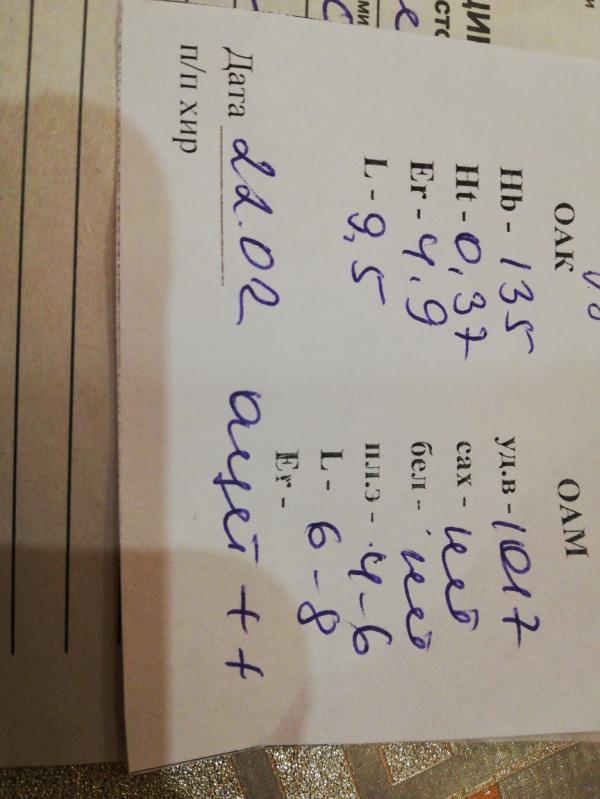 ОАК
Hb - 135
Ht - 0,37
Er - 4,9
L - 9,5
ОАМ
уд.в - 1017
сах - нет
бел - нет
пл.э - 4-6
L - 6-8
Er -
Дата 22.02
ацет ++
п/п хир